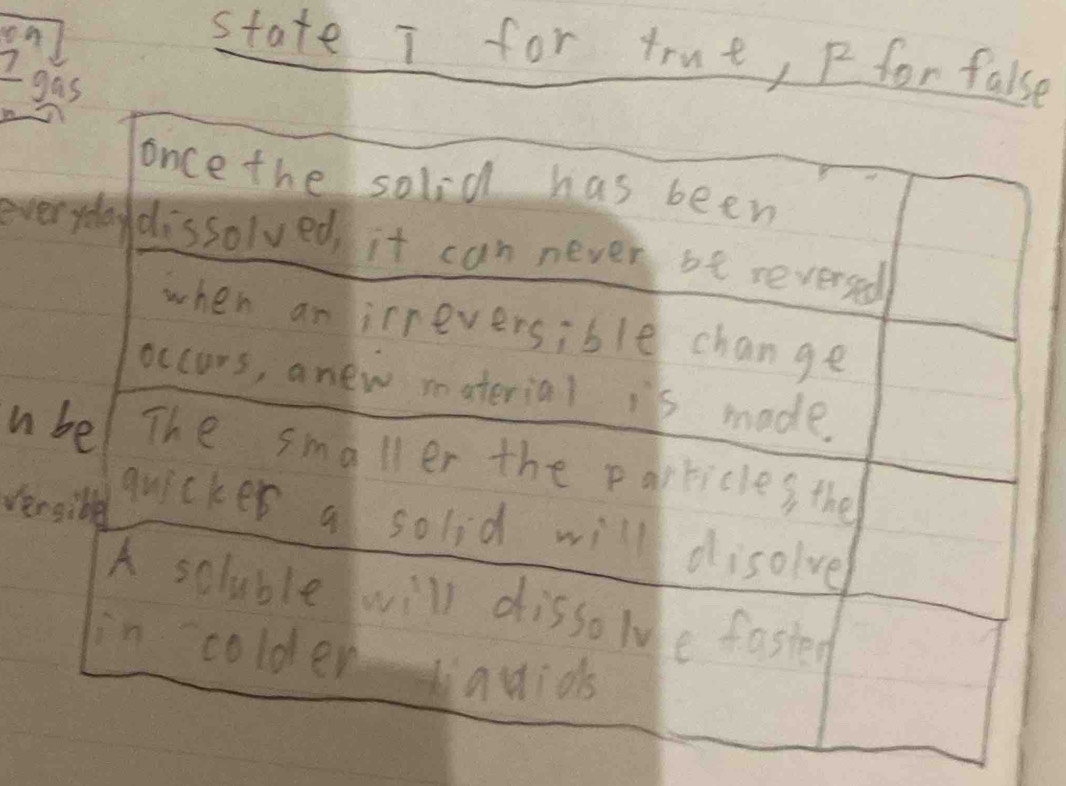 state T for true, F for false
gas
once the solid has been
everyday dissolved, it can never be reversed
when an irreversible change
occurs, a new material is made.
n be The smaller the particles, the
quicker a solid will disolve
A soluble will dissolve faster
in colder liquids